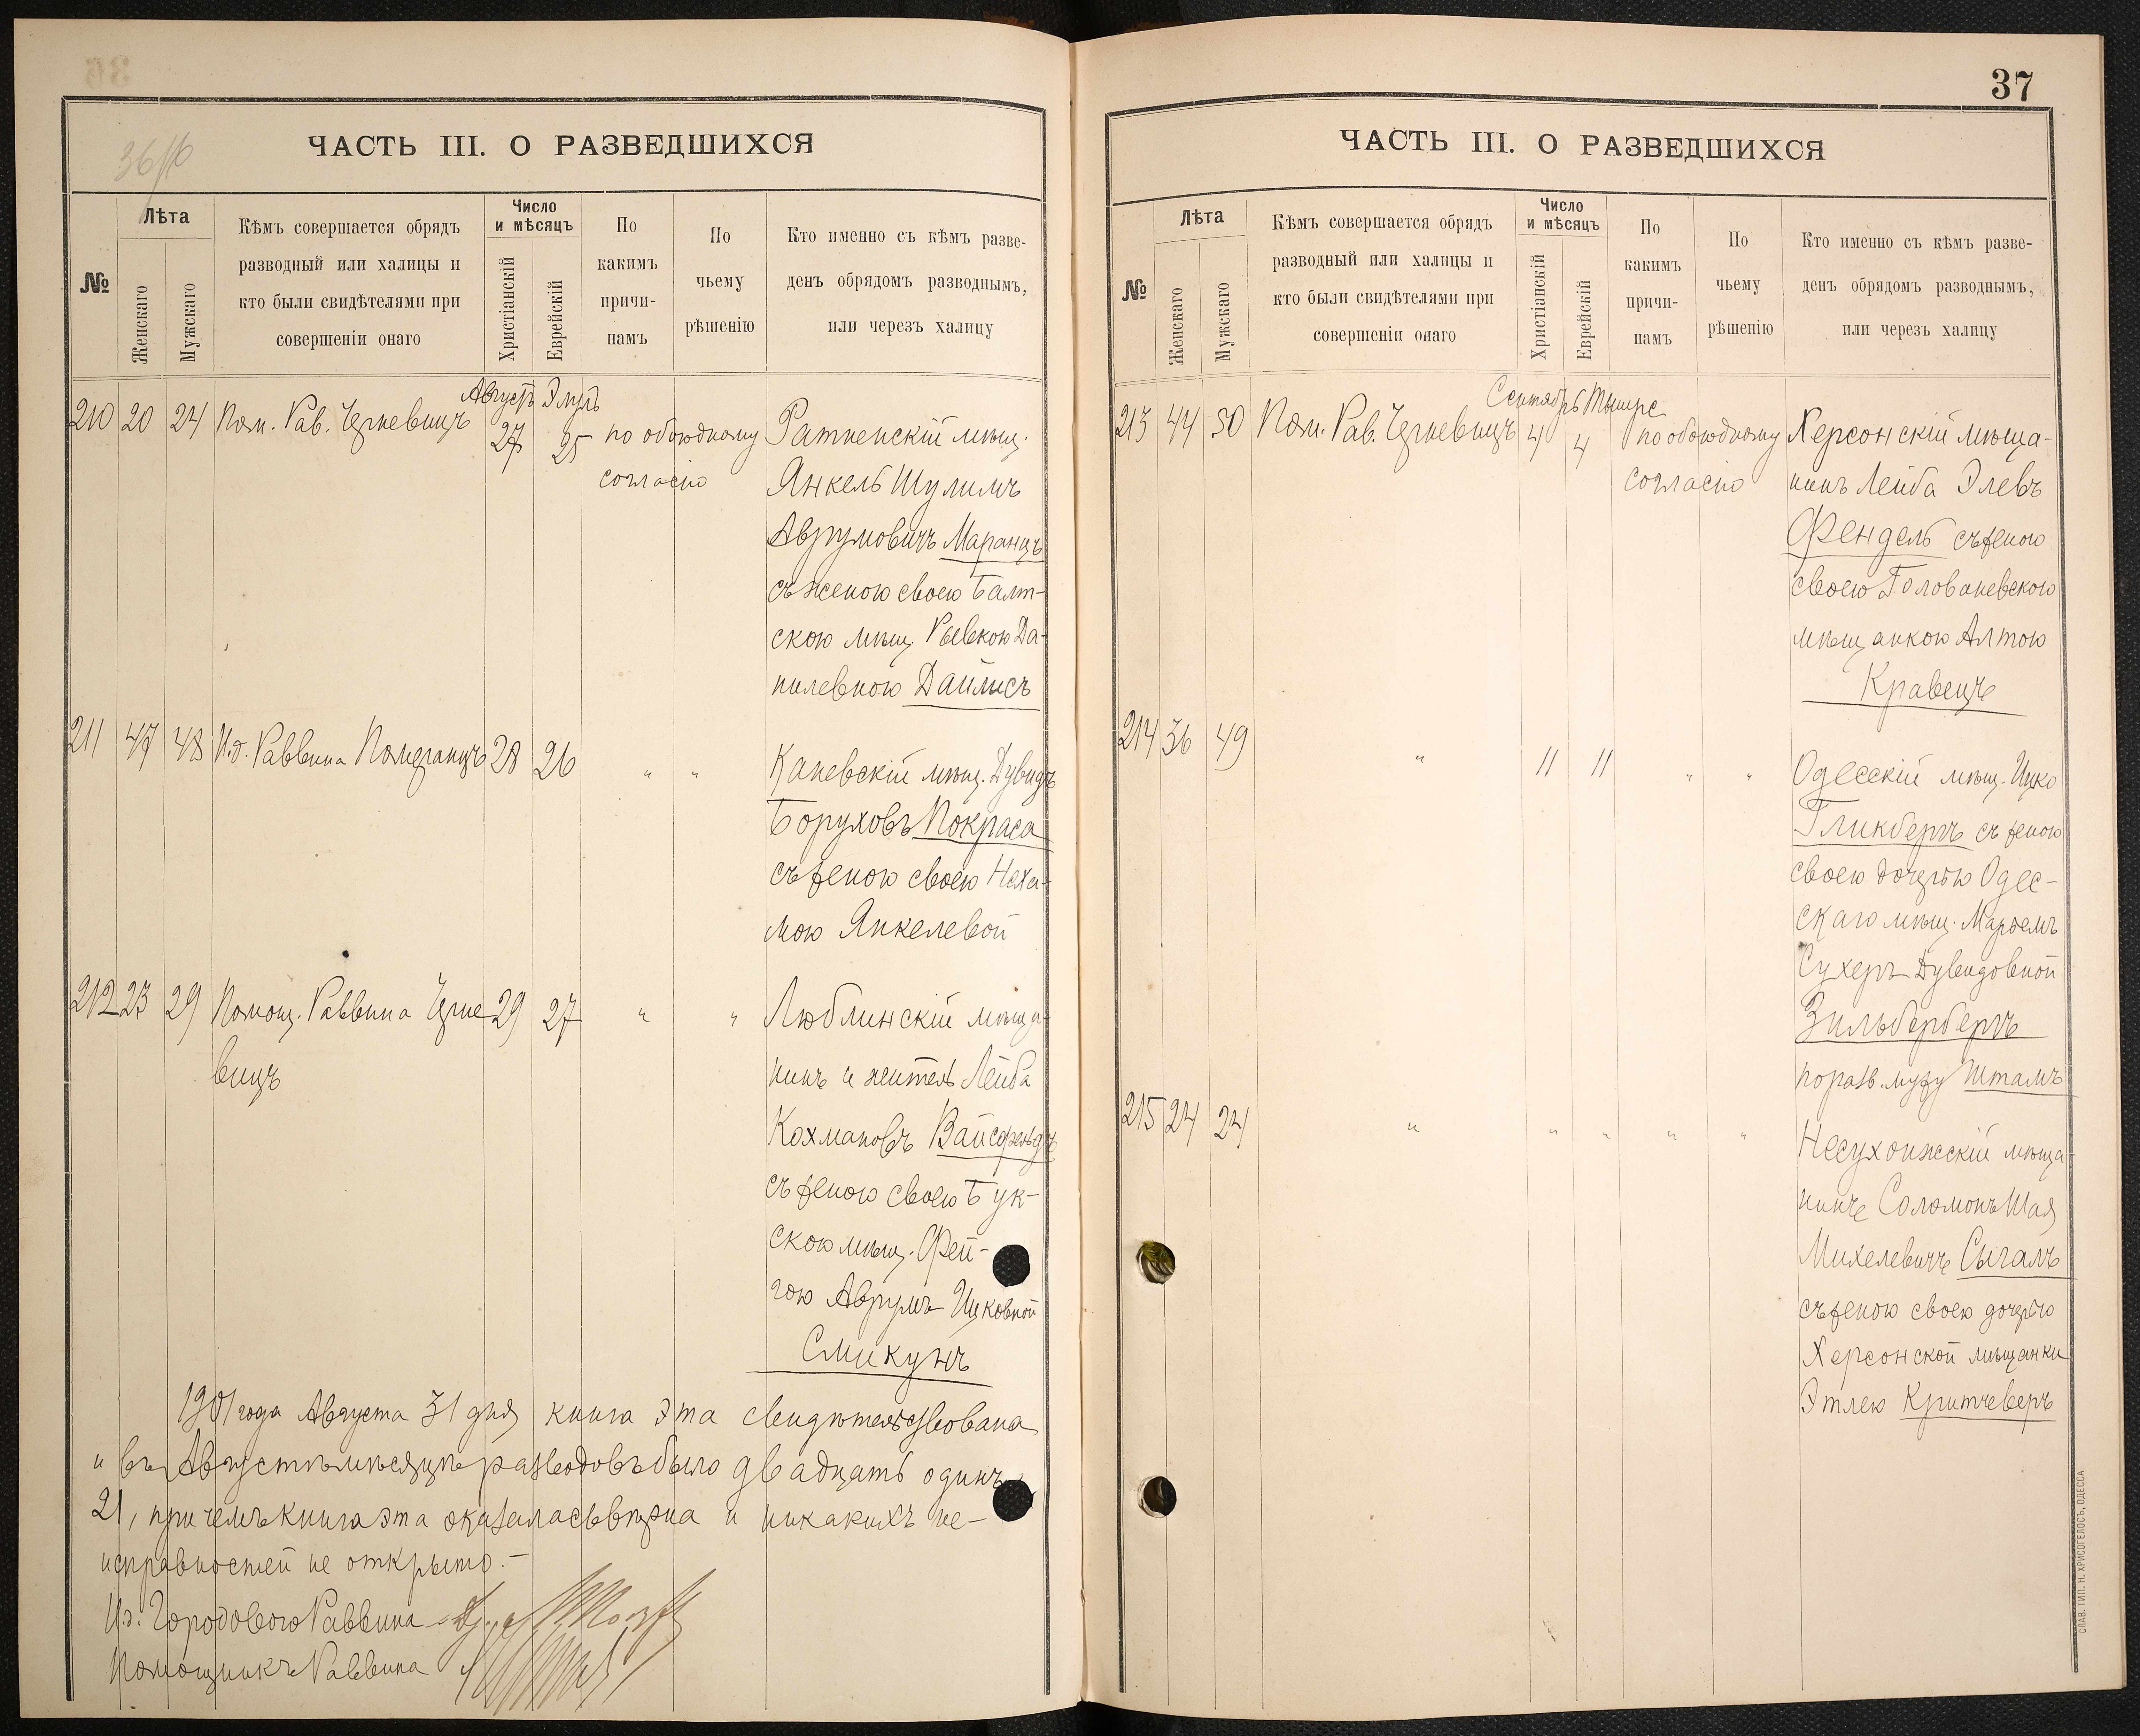 36
ЧАСТЬ III. О РАЗВЕДШИХСЯ
№
Лѣта
Женскаго
Мужскаго
Кѣмъ совершается обрядъ
разводный или халицы и
кто были свидѣтелями при
совершеніи онаго
Число
и мѣсяцъ
Христіанскій
Еврейскій
По
какимъ
причи-
намъ
По
чьему
рѣшенію
Кто именно съ кѣмъ разве-
денъ обрядомъ разводнымъ,
или черезъ халицу
Августъ Элулъ
210 20 24 Пом. Рав. Черневицъ 27 25 по обоюдному
согласію
Ратненскій мѣщ.
Янкель Шулимъ
Аврумовичъ Маранцъ
съ женою своею Балт-
скою мѣщ. Рывкою Да-
нилевною Дайлисъ
211 47 48 И.д. Раввина Померанцъ 28 26 " "
Каневскій мѣщ. Дувидъ
Боруховъ Покраса
съ женою своею Неха-
мою Янкелевой
212 23 29 Помощ. Раввина Черне- 29 27 " "
вицъ
Люблинскій мѣща-
нинъ и житель Лейба
Кохмановъ Вайсфельдъ
съ женою своею Бук-
скою мѣщ. Фей-
гою Аврумъ Ицковной
Смикунъ
1901 года Августа 31 дня книга эта свидѣтельствована
и въ Августѣ мѣсяцѣ разводовъ было двадцать одинъ
21, при чемъ книга эта оказалась вѣрна и никакихъ не-
исправностей не открыто.-
И.д. Городового Раввина
Помощникъ Раввина
37
ЧАСТЬ III. О РАЗВЕДШИХСЯ
№
Лѣта
Женскаго
Мужскаго
Кѣмъ совершается обрядъ
разводный или халицы и
кто были свидѣтелями при
совершеніи онаго
Число
и мѣсяцъ
Христіанскій
Еврейскій
По
какимъ
причи-
намъ
По
чьему
рѣшенію
Кто именно съ кѣмъ разве-
денъ обрядомъ разводнымъ,
или черезъ халицу
Сентябрь Тышре
213 44 50 Пом. Рав. Черневицъ 4 4 по обоюдному
согласію
Херсонскій мѣща-
нинъ Лейба Элевъ
Фендель съ женою
своею Голованевскою
мѣщанкою Алтою
Кравецъ
214 36 49 " 11 11 " "
Одесскій мѣщ. Ицко
Гликбергъ съ женою
своею дочерью Одес-
скаго мѣщ. Марьемъ
Сухеръ Дувидовной
Зильбербергъ
по разв. мужу Штамъ
215 24 24 " " " " "
Несухоижскій мѣща-
нинъ Соломонъ Шая
Михелевичъ Сыгалъ
съ женою своею дочерью
Херсонской мѣщанки
Этлею Критчеверъ
СЛАВ. ТИП. Н. ХРИСОГЕЛОСЪ, ОДЕССА